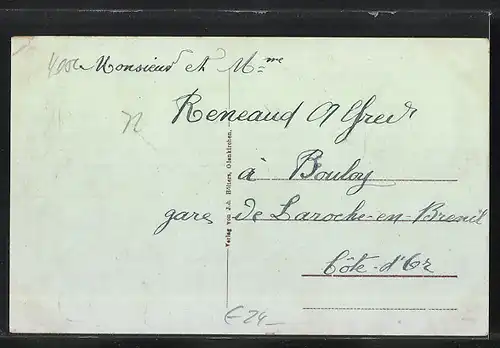 Monsieur et Mme
Reneaud Alfred
à Bouloy
gare de Laroche-en-Brenil
Côte-d'Or
Verlag von Joh. Hülters, Odenkirchen.
E-24-